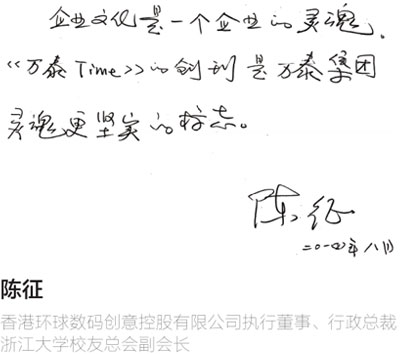 企业文化是一个企业的灵魂.
《万泰Time》的创刊是万泰集团
灵魂更坚实的标志。
陈征
二〇一四年八月
陈征
香港环球数码创意控股有限公司执行董事、行政总裁
浙江大学校友总会副会长